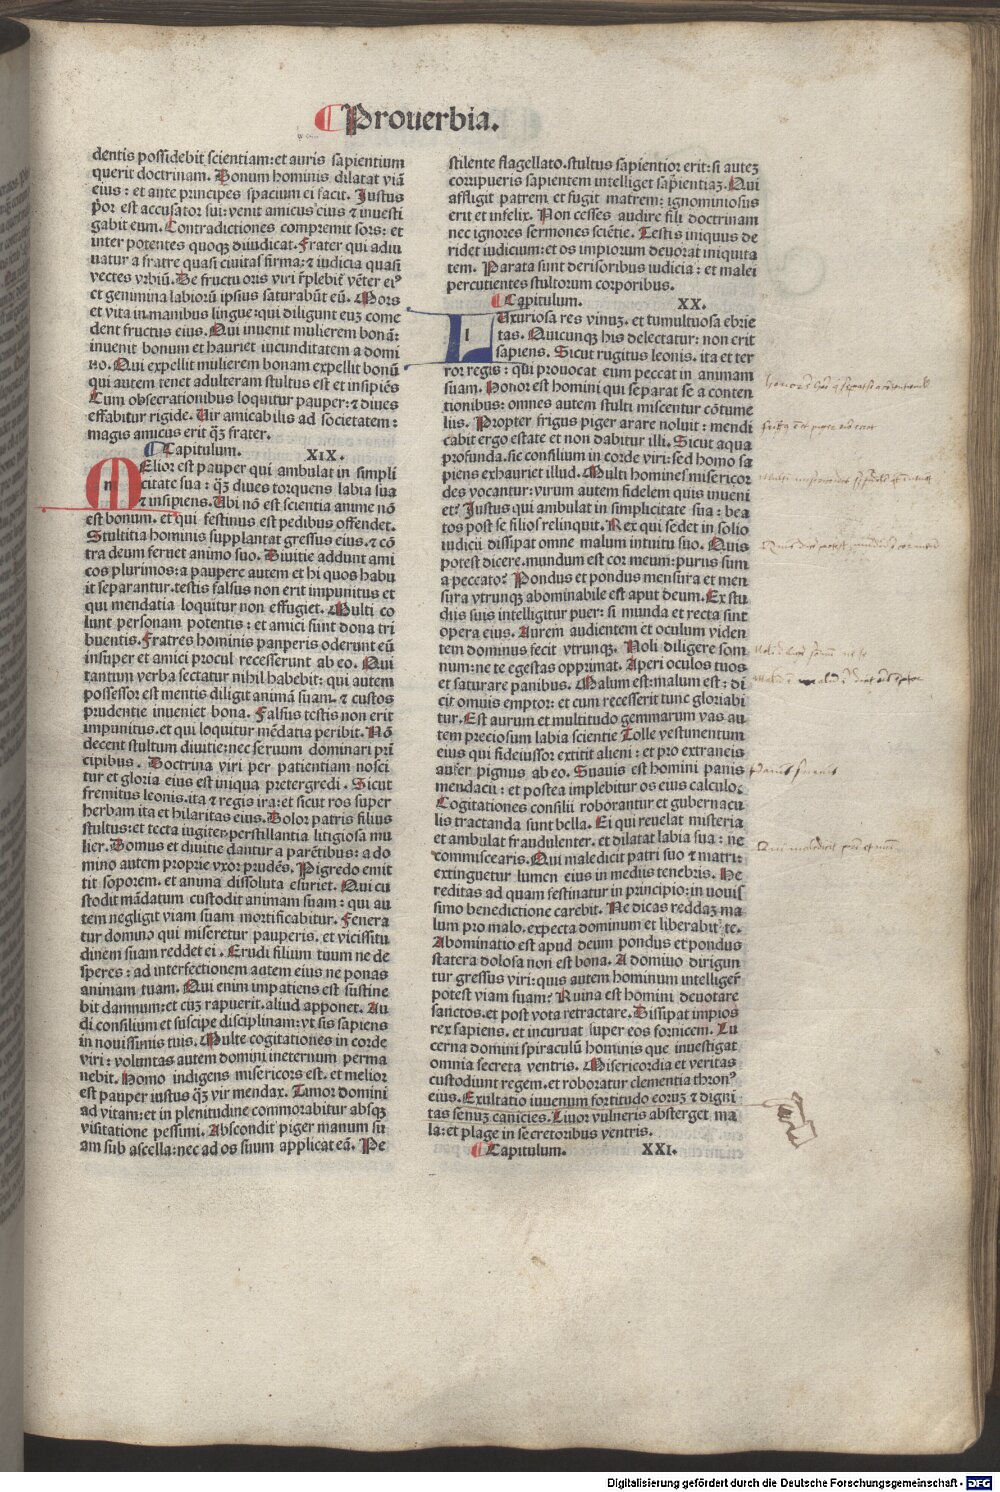 Prouerbia.
dentis possidebit scientiam: et auris sapientium
querit doctrinam. Bonum hominis dilatat viā
eius: et ante principes spacium ei facit. Justus
prior est accusator sui: venit amicus eius ⁊ inuesti
gabit eum. Contradictiones compremit sors: et
inter potentes quoqꝫ diiudicat. Frater qui adiu
uatur a fratre quasi ciuitas firma: ⁊ iudicia quasi
vectes vrbiū. De fructu oris viri replebit᷑ vēter eiꝰ
et genimina labiorū ipsius saturabūt eū. Mors
et vita in manibus lingue: qui diligunt euꝫ come
dent fructus eius. Qui inuenit mulierem bonā:
inuenit bonum et hauriet iucunditatem a domi
no. Qui expellit mulierem bonam expellit bonū
qui autem tenet adulteram stultus est et insipiēs
Cum obsecrationibus loquitur pauper: ⁊ diues
effabitur rigide. Uir amicabilis ad societatem:
magis amicus erit qꝫ frater.
Capitulum. XIX.
MElior est pauper qui ambulat in simpli
citate sua: qꝫ diues torquens labia sua
⁊ insipiens. Ubi nō est scientia anime nō
est bonum. et qui festinus est pedibus offendet.
Stultitia hominis supplantat gressus eius. ⁊ cō
tra deum feruet animo suo. Diuitie addunt ami
cos plurimos: a paupere autem et hi quos habu
it separantur. testis falsus non erit impunitus et
qui mendatia loquitur non effugiet. Multi co
lunt personam potentis: et amici sunt dona tri
buentis. Fratres hominis panperis oderunt eū
insuper et amici procul recesserunt ab eo. Qui
tantum verba sectatur nihil habebit: qui autem
possessor est mentis diligit animā suam. ⁊ custos
prudentie inueniet bona. Falsus testis non erit
impunitus. et qui loquitur mēdatia peribit. Nō
decent stultum diuitie: nec seruum dominari pri
cipibus. Doctrina viri per patientiam nosci
tur et gloria eius est iniqua pretergredi. Sicut
fremitus leonis. ita ⁊ regis ira: et sicut ros super
herbam ita et hilaritas eius. Dolor patris filius
stultus: et tecta iugiter perstillantia litigiosa mu
lier. Domus et diuitie dantur a parētibus: a do
mino autem proprie vxor prudēs. Pigredo emit
tit soporem. et anima dissoluta esuriet. Qui cu
stodit mādatum custodit animam suam: qui au
tem negligit viam suam mortificabitur. Fenera
tur domino qui miseretur pauperis. et vicissitu
dinem suam reddet ei. Erudi filium tuum ne de
speres: ad interfectionem autem eius ne ponas
animam tuam. Qui enim impatiens est sustine
bit damnum: et cuꝫ rapuerit. aliud apponet. Au
di consilium et suscipe disciplinam: vt sis sapiens
in nouissimis tuis. Multe cogitationes in corde
viri: voluntas autem domini ineternum perma
nebit. Homo indigens misericors est. et melior
est pauper iustus qꝫ vir mendax. Timor domini
ad vitam: et in plenitudine commorabitur absqꝫ
visitatione pessimi. Abscondit piger manum su
am sub ascella: nec ad os suum applicat eā. Pe
stilente flagellato. stultus sapientior erit: si auteꝫ
corripueris sapientem intelliget sapientiaꝫ. Qui
affligit patrem et fugit matrem: ignominiosus
erit et infelix. Non cesses audire fili doctrinam
nec ignores sermones sciētie. Testis iniquus de
ridet iudicium: et os impiorum deuorat iniquita
tem. Parata sunt derisoribus iudicia: et malei
percutientes stultorum corporibus.
Capitulum. XX.
LUxuriosa res vinuꝫ. et tumultuosa ebrie
tas. Quicunqꝫ his delectatur: non erit
sapiens. Sicut rugitus leonis. ita et ter
ror regis: qui prouocat eum peccat in animam
suam. Honor est homini qui separat se a conten
tionibus: omnes autem stulti miscentur cōtume
liis. Propter frigus piger arare noluit: mendi
cabit ergo estate et non dabitur illi. Sicut aqua
profunda. sic consilium in corde viri: sed homo sa
piens exhauriet illud. Multi homines misericor
des vocantur: virum autem fidelem quis inueni
et? Justus qui ambulat in simplicitate sua: bea
tos post se filios relinquit. Rex qui sedet in solio
iudicii dissipat omne malum intuitu suo. Quis
potest dicere. mundum est cor meum: purus sum
a peccato? Pondus et pondus mensura et men
sura vtrunqꝫ abominabile est aput deum. Ex stu
diis suis intelligitur puer: si munda et recta sint
opera eius. Aurem audientem et oculum viden
tem dominus fecit vtrunqꝫ. Noli diligere som
num: ne te egestas opprimat. Aperi oculos tuos
et saturare panibus. Malum est: malum est: di
cit omuis emptor: et cum recesserit tunc gloriabi
tur. Est aurum et multitudo gemmarum vas au
tem preciosum labia scientie Tolle vestimentum
eius qui fideiussor extitit alieni: et pro extraneis
aufer pignus ab eo. Suauis est homini panis
mendacii: et postea implebitur os eius calculo.
Cogitationes consilii roborantur et gubernacu
lis tractanda sunt bella. Ei qui reuelat misteria
et ambulat fraudulenter. et dilatat labia sua: ne
commiscearis. Qui maledicit patri suo ⁊ matri:
extinguetur lumen eius in mediis tenebris. He
reditas ad quam festinatur in principio: in nouis
simo benedictione carebit. Ne dicas reddaꝫ ma
lum pro malo. expecta dominum et liberabit te.
Abominatio est apud deum pondus et pondus
statera dolosa non est bona. A domiuo dirigun
tur gressus viri: quis autem hominum intelliger̄
potest viam suam? Ruina est homini deuotare
sanctos. et post vota retractare. Dissipat impios
rex sapiens. et incuruat super eos fornicem. Lu
cerna domini spiraculū hominis que inuestigat
omnia secreta ventris. Misericordia et veritas
custodiunt regem. et roboratur clementia thronꝰ
eius. Exultatio iuuenum fortitudo eoruꝫ ⁊ digni
tas senuꝫ canicies. Liuor vulneris absterget ma
la: et plage in secretoribus ventris.
Capitulum. XXI.
Digitalisierung gefördert durch die Deutsche Forschungsgemeinschaft - DFG